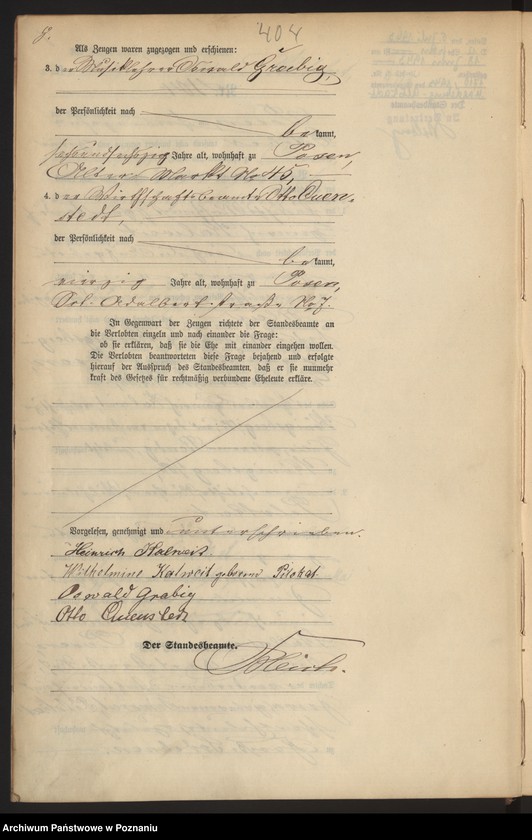 8.
404
Als Zeugen waren zugezogen und erschienen:
3. der Musiklehrer Oswald Graebig,
der Persönlichkeit nach
bekannt,
sechsundsechzig Jahre alt, wohnhaft zu Posen,
Alter Markt No 45,
4. der Wirthschaftsbeamte Otto Quen-
stedt,
der Persönlichkeit nach
bekannt,
Jahre alt, wohnhaft zu Posen,
Adalbertstraße No 7.
In Gegenwart der Zeugen richtete der Standesbeamte an
die Verlobten einzeln und nach einander die Frage:
ob sie erklären, daß sie die Ehe mit einander eingehen wollen.
Die Verlobten beantworteten diese Frage bejahend und erfolgte
hierauf der Ausspruch des Standesbeamten, daß er sie nunmehr
kraft des Gesetzes für rechtmäßig verbundene Eheleute erkläre.
Vorgelesen, genehmigt und unterschrieben.
Heinrich Kalweit
Wilhelmine Kalweit geborene Pilokat
Oswald Grabig
Otto Quenstedt
Der Standesbeamte.
Archiwum Państwowe w Poznaniu